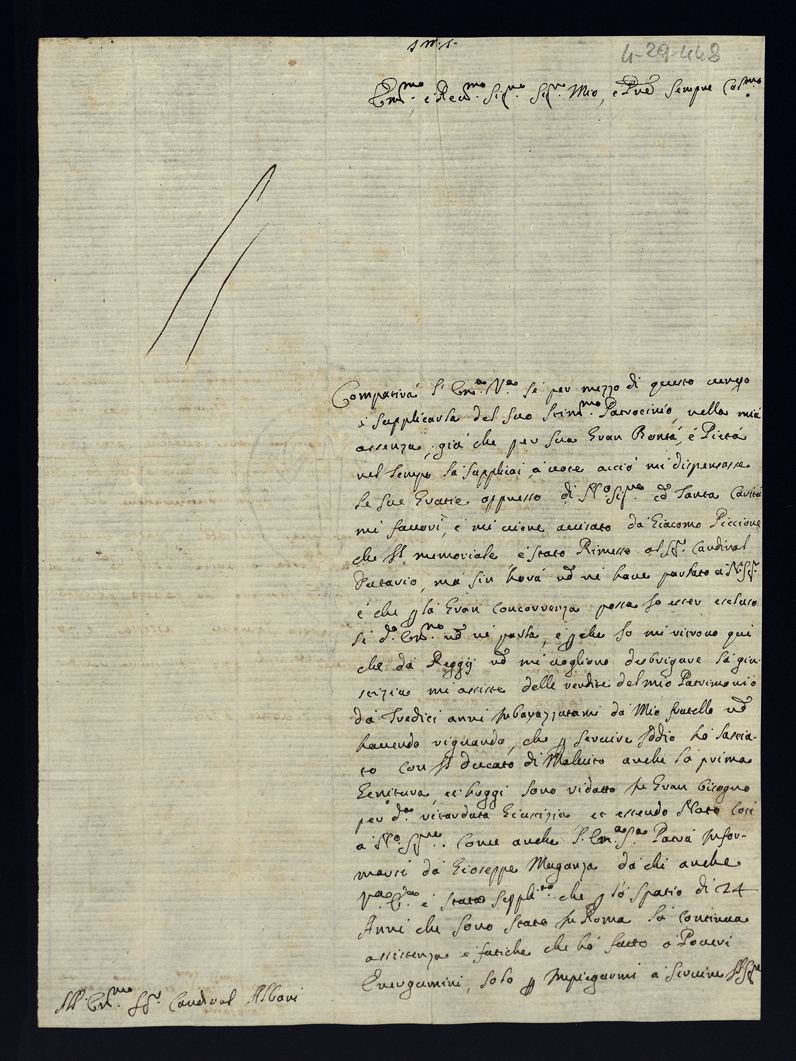 4-29-448
Em.mo, e Rev.mo Sig.re Sig.re Mio, e Pne Sempre Col.mo
Compatirà l'Em.za V.ra se per mezzo di questo vengo
à supplicarla del suo Stim.mo Patrocinio, nella mia
assenza, già che per sua Gran Bontà, è Pietà
nel tempo la supplicai, à voce acciò mi dispensasse
le sue Gratie appresso di N.ro Sig.re ed tanta Carità
mi favorì, è mi viene avisato da Giacomo Piccione
che il memoriale è stato Rimesso al Sig.r Cardinal
Datario, mà sin hora né have parlato à N. Sig.r
è che la Gran Concorrenza possa Io esser escluso
si d.o Em.mo parla, e che Io mi ritrovo qui
che da Reggij non mi vogliono desbrigare la giu-
stizia mi assiste delle rendite del mio Patrimonio
da tredici anni Inbarazzatami da Mio fratello
havendo riguardo, che servire Iddio hò lascia-
to con il ducato di Maluito anche la prima
Genitura, et hoggi sono ridotto in Gran bisogno
per d.a ritardata Giustizia, et essendo Noto Così
à N.ro Sig.re. Come anche l'Em.za S.a Potrà Infor-
marsi da Gioseppe Maganza da chi anche
V.ra E. è stata Suppl.ta che lo spatio di 24
Anni che sono stato in Roma la continua
assistenza e fatiche che hò fatto à Poveri
Energumini, solo Impiegarmi à servire il Sig.re
All'Em.mo Sig.r Cardinal Albani